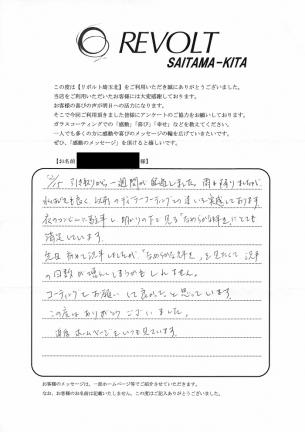 REVOLT
SAITAMA-KITA
この度は【リボルト埼玉北】をご利用いただき誠にありがとうございました。
当店をご利用いただいたお客様には大変感謝しております。
お客様の喜びの声が明日への活力になります。
そこで今回ご利用頂きました皆様にアンケートのご協力をお願いしております。
ガラスコーティングでの「感動」「喜び」「幸せ」などを教えてください。
一人でも多くの方に感動や喜びのメッセージの輪を広げていきたいです。
ぜひ、「感動のメッセージ」を頂けると嬉しいです。
【お名前 様】
引き取りから、一週間が経過しました。雨も降りましたが
以前のディーラーコーティングとの違いを実感しております
夜のコンビニ駐車し、明かりの下で見る"なめらかな輝き"にとても
満足しています。
先日初めて洗車しましたが、"なめらかな輝き"を見たくて洗車
の回数が増えてしまうかもしれません。
コーティングをお願いして良かったと思っています。
この度はありがとうございました。
ホームページをいつも見ています。
お客様のメッセージは、一部ホームページ等でご紹介させていただきます。
なお、お客様のお名前は記載いたしません。この度はご記入ありがとうございました。